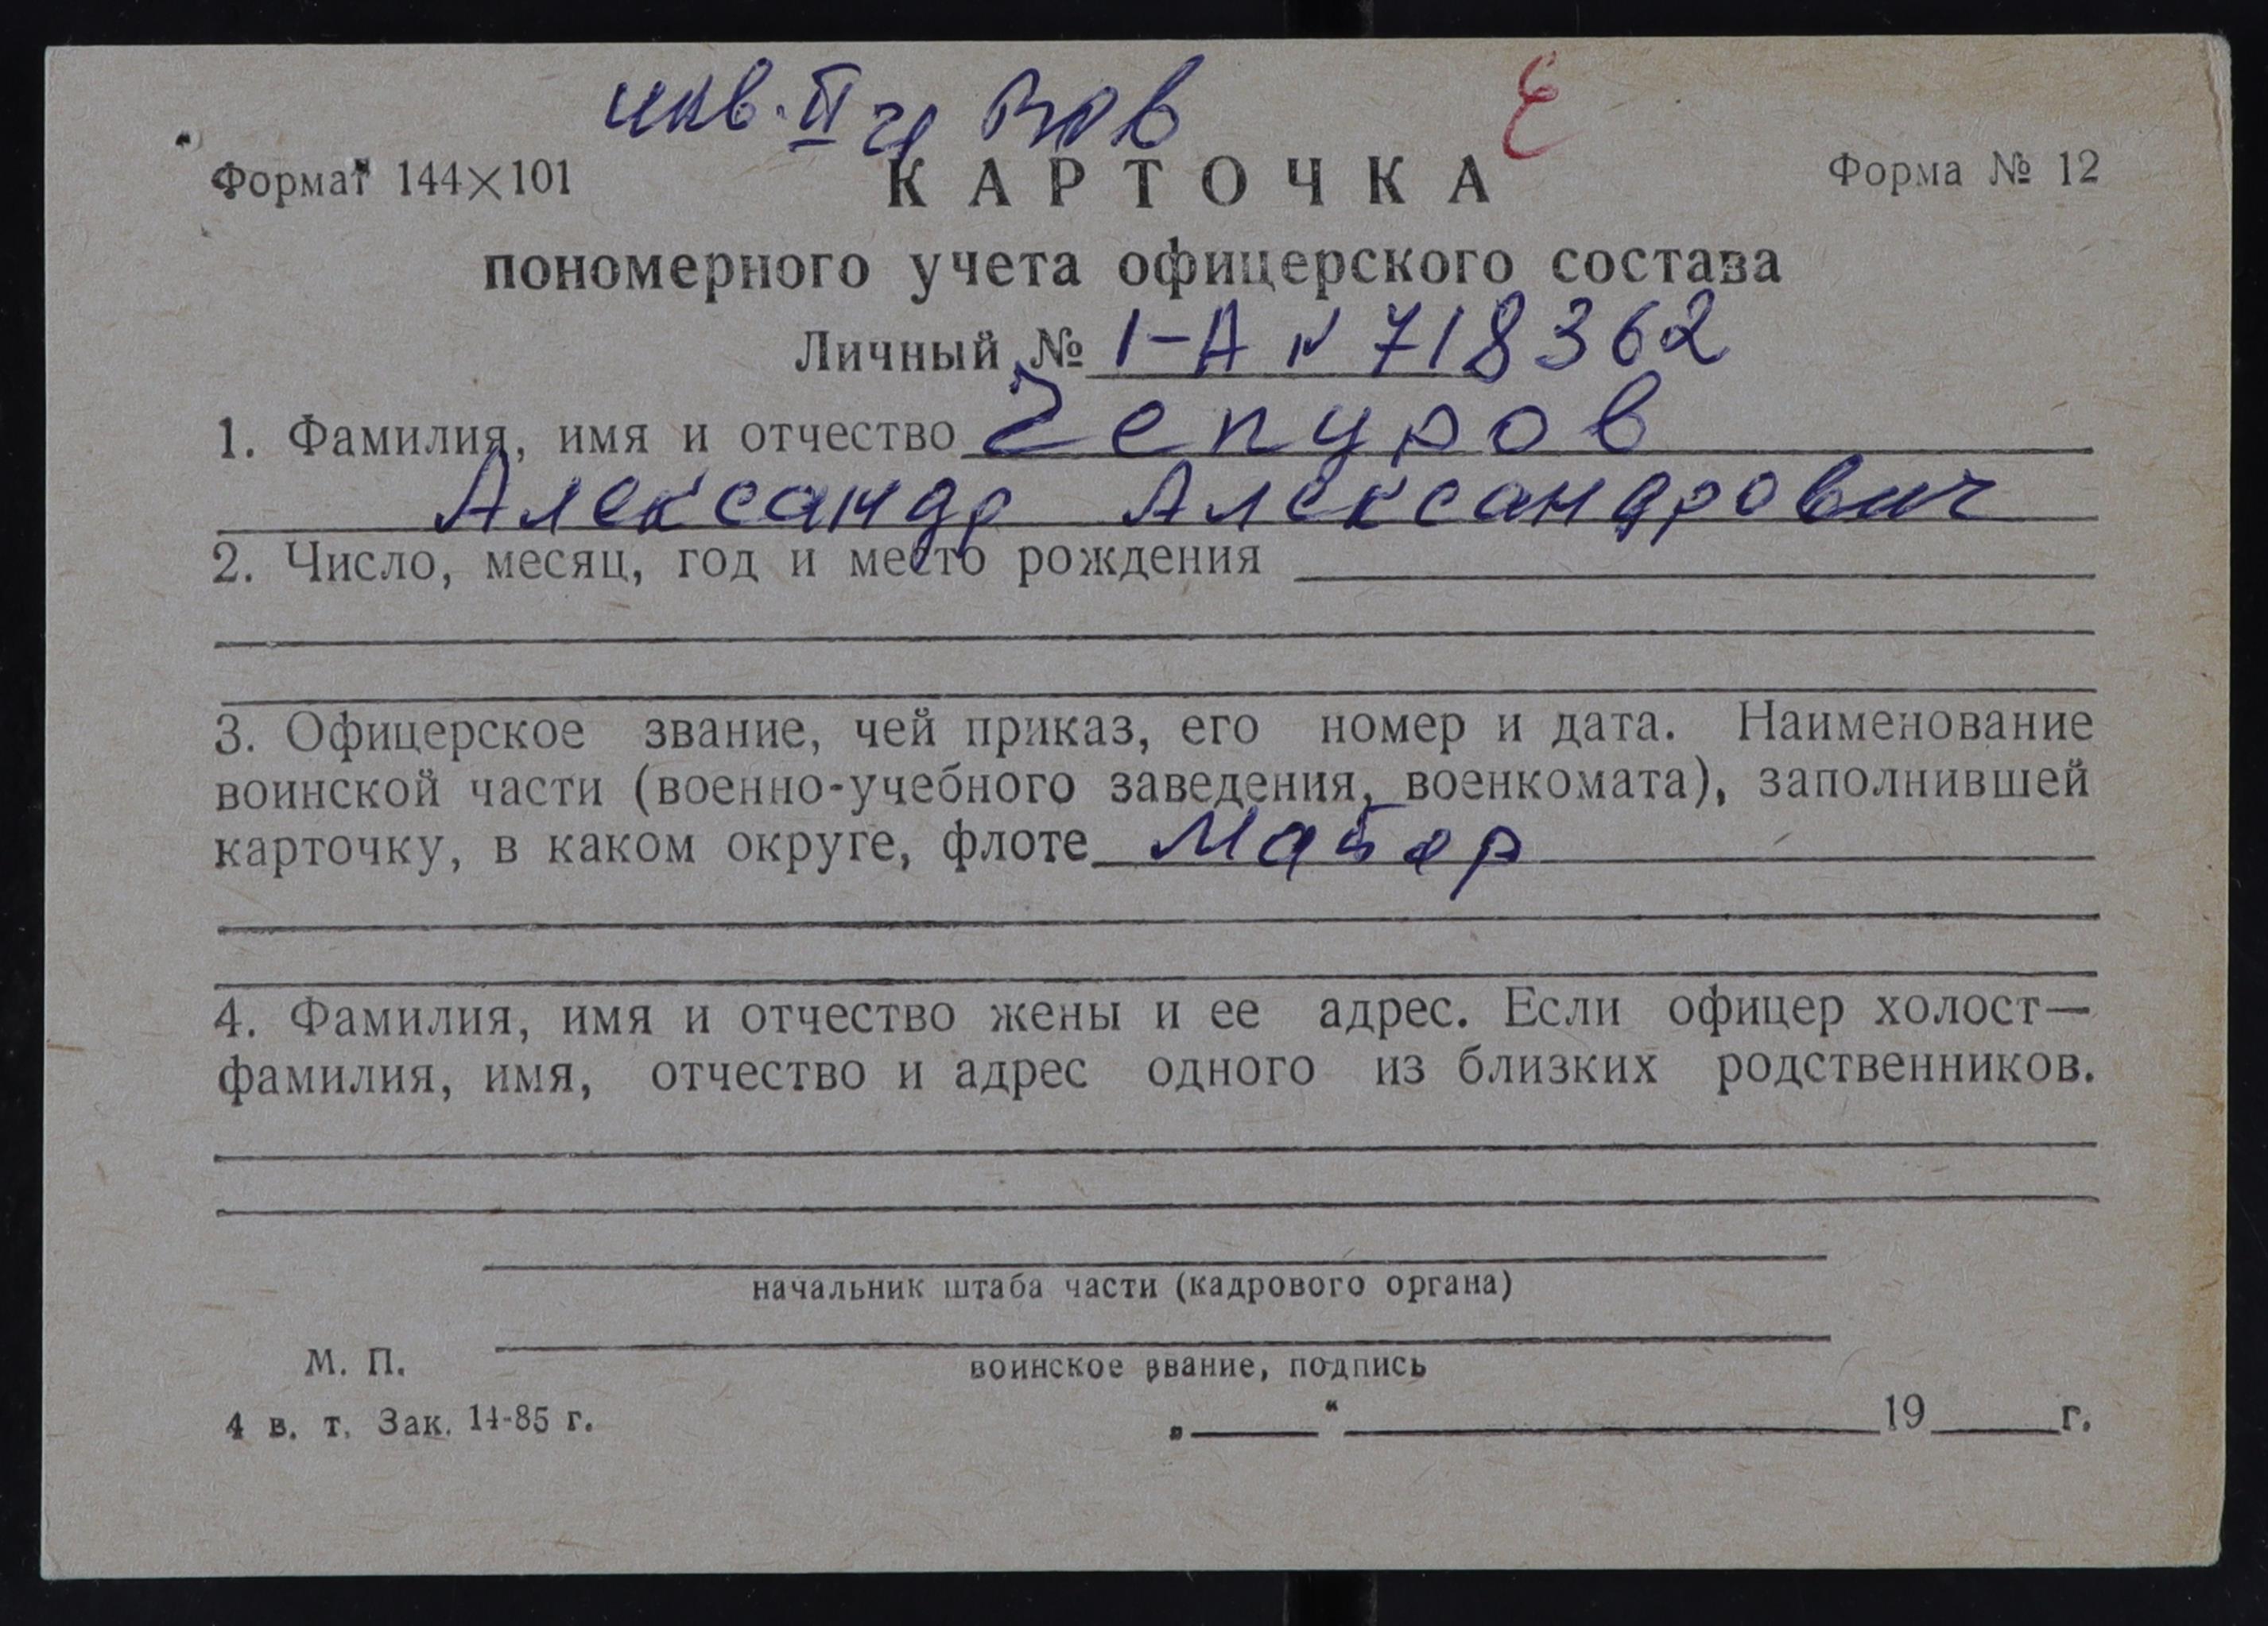 инв. II гр ВОВ Е
Формат 144×101 КАРТОЧКА Форма № 12
пономерного учета офицерского состава
Личный № 1-А № 718362
1. Фамилия, имя и отчество Чепуров
Александр Александрович
2. Число, месяц, год и место рождения
3. Офицерское звание, чей приказ, его номер и дата. Наименование
воинской части (военно-учебного заведения, военкомата), заполнившей
карточку, в каком округе, флоте Майор
4. Фамилия, имя и отчество жены и ее адрес. Если офицер холост—
фамилия, имя, отчество и адрес одного из близких родственников.
начальник штаба части (кадрового органа)
М. П.
воинское звание, подпись
4 в. т. Зак. 14-85 г. „ “ 19 г.